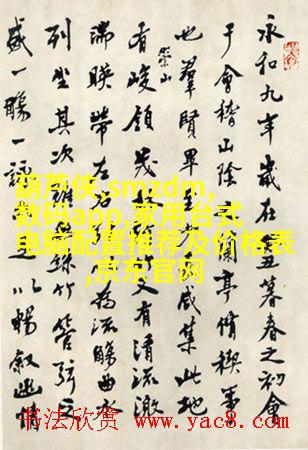 永和九年歲在丑暮春之初會
于會稽山陰蘭亭脩稧事
也羣賢畢咸集此地
有崇山峻領茂竹又有清流激
湍暎帶左右為流觴曲水
列坐其次絲竹管弦之
盛一觴一詠以暢敘幽情
葫芦侠,smzdm,
数码app,家用台式
电脑配置推荐及价格表
,京东官网
书法欣赏 www.yac8.com